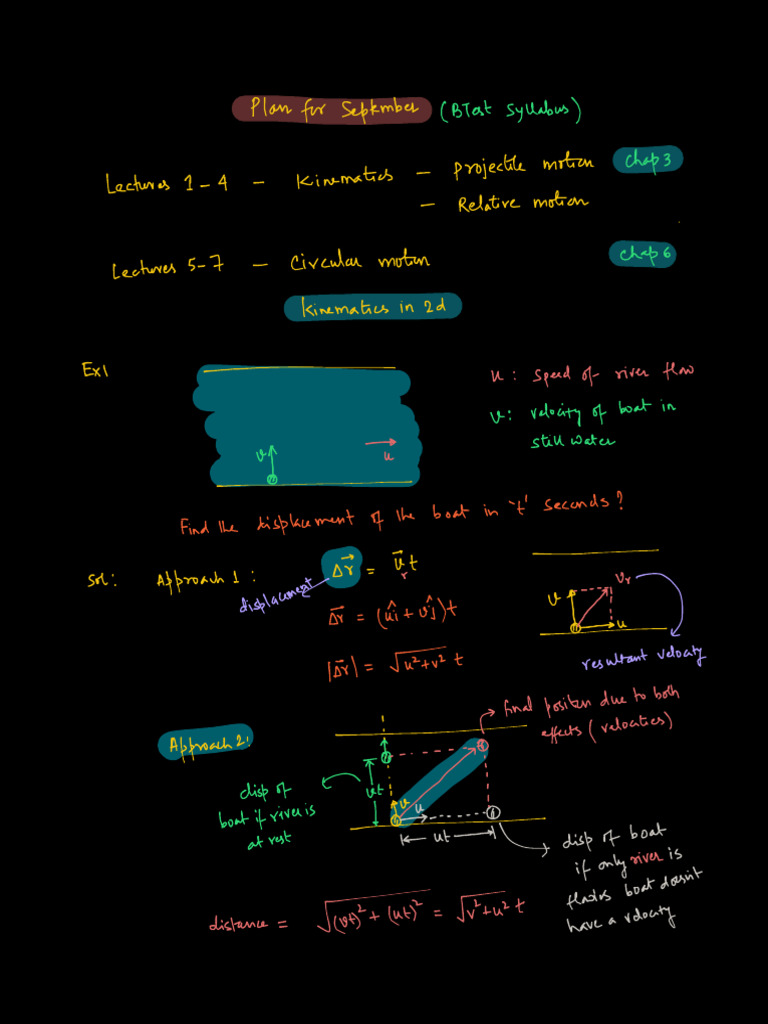 Plan for September (BTest Syllabus)
Lectures 1-4 - Kinematics - Projectile motion Chap 3
- Relative motion
Lectures 5-7 - Circular motion Chap 6
Kinematics in 2d
Ex1
u: speed of river flow
v: velocity of boat in
still water
v
u
Find the displacement of the boat in 't' seconds?
Sol: Approach 1: Δr⃗ = v⃗ᵣt
displacement
Δr⃗ = (uî + vĵ)t
|Δr⃗| = √(u²+v²) t
v
vᵣ
u
resultant velocity
Approach 2:
final position due to both
effects (velocities)
disp of
boat if river is
at rest
vt
v
u
ut
disp of boat
if only river is
boat doesn't
have a velocity
distance = √((vt)² + (ut)²) = √(v²+u²) t